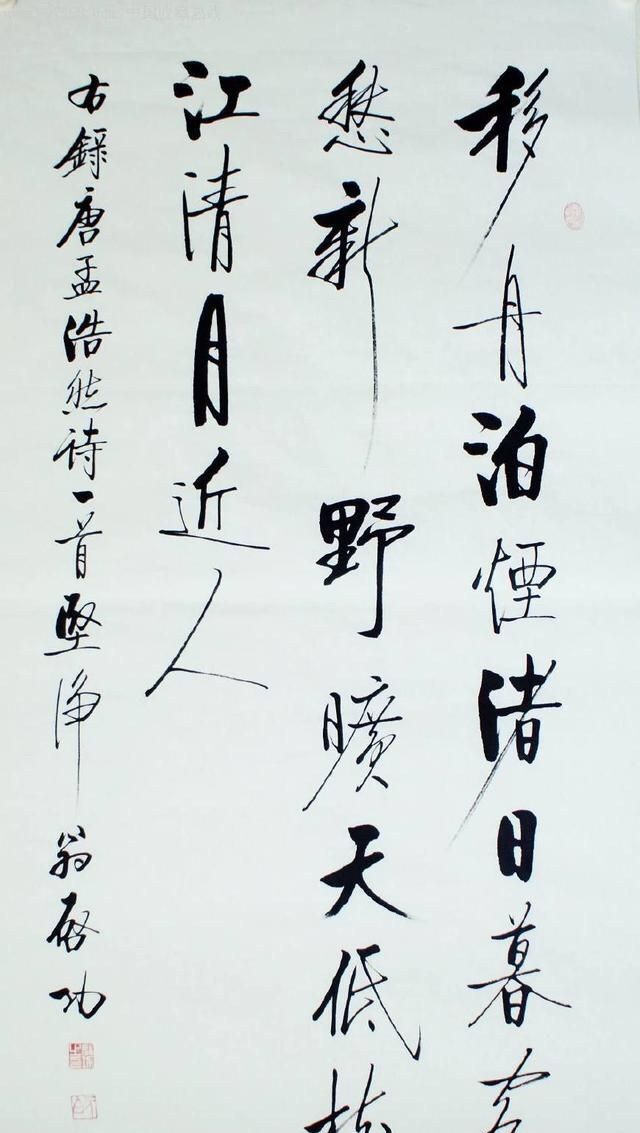 移舟泊煙渚日暮客
愁新野曠天低樹
江清月近人
右錄唐孟浩然诗一首堅净翁启功